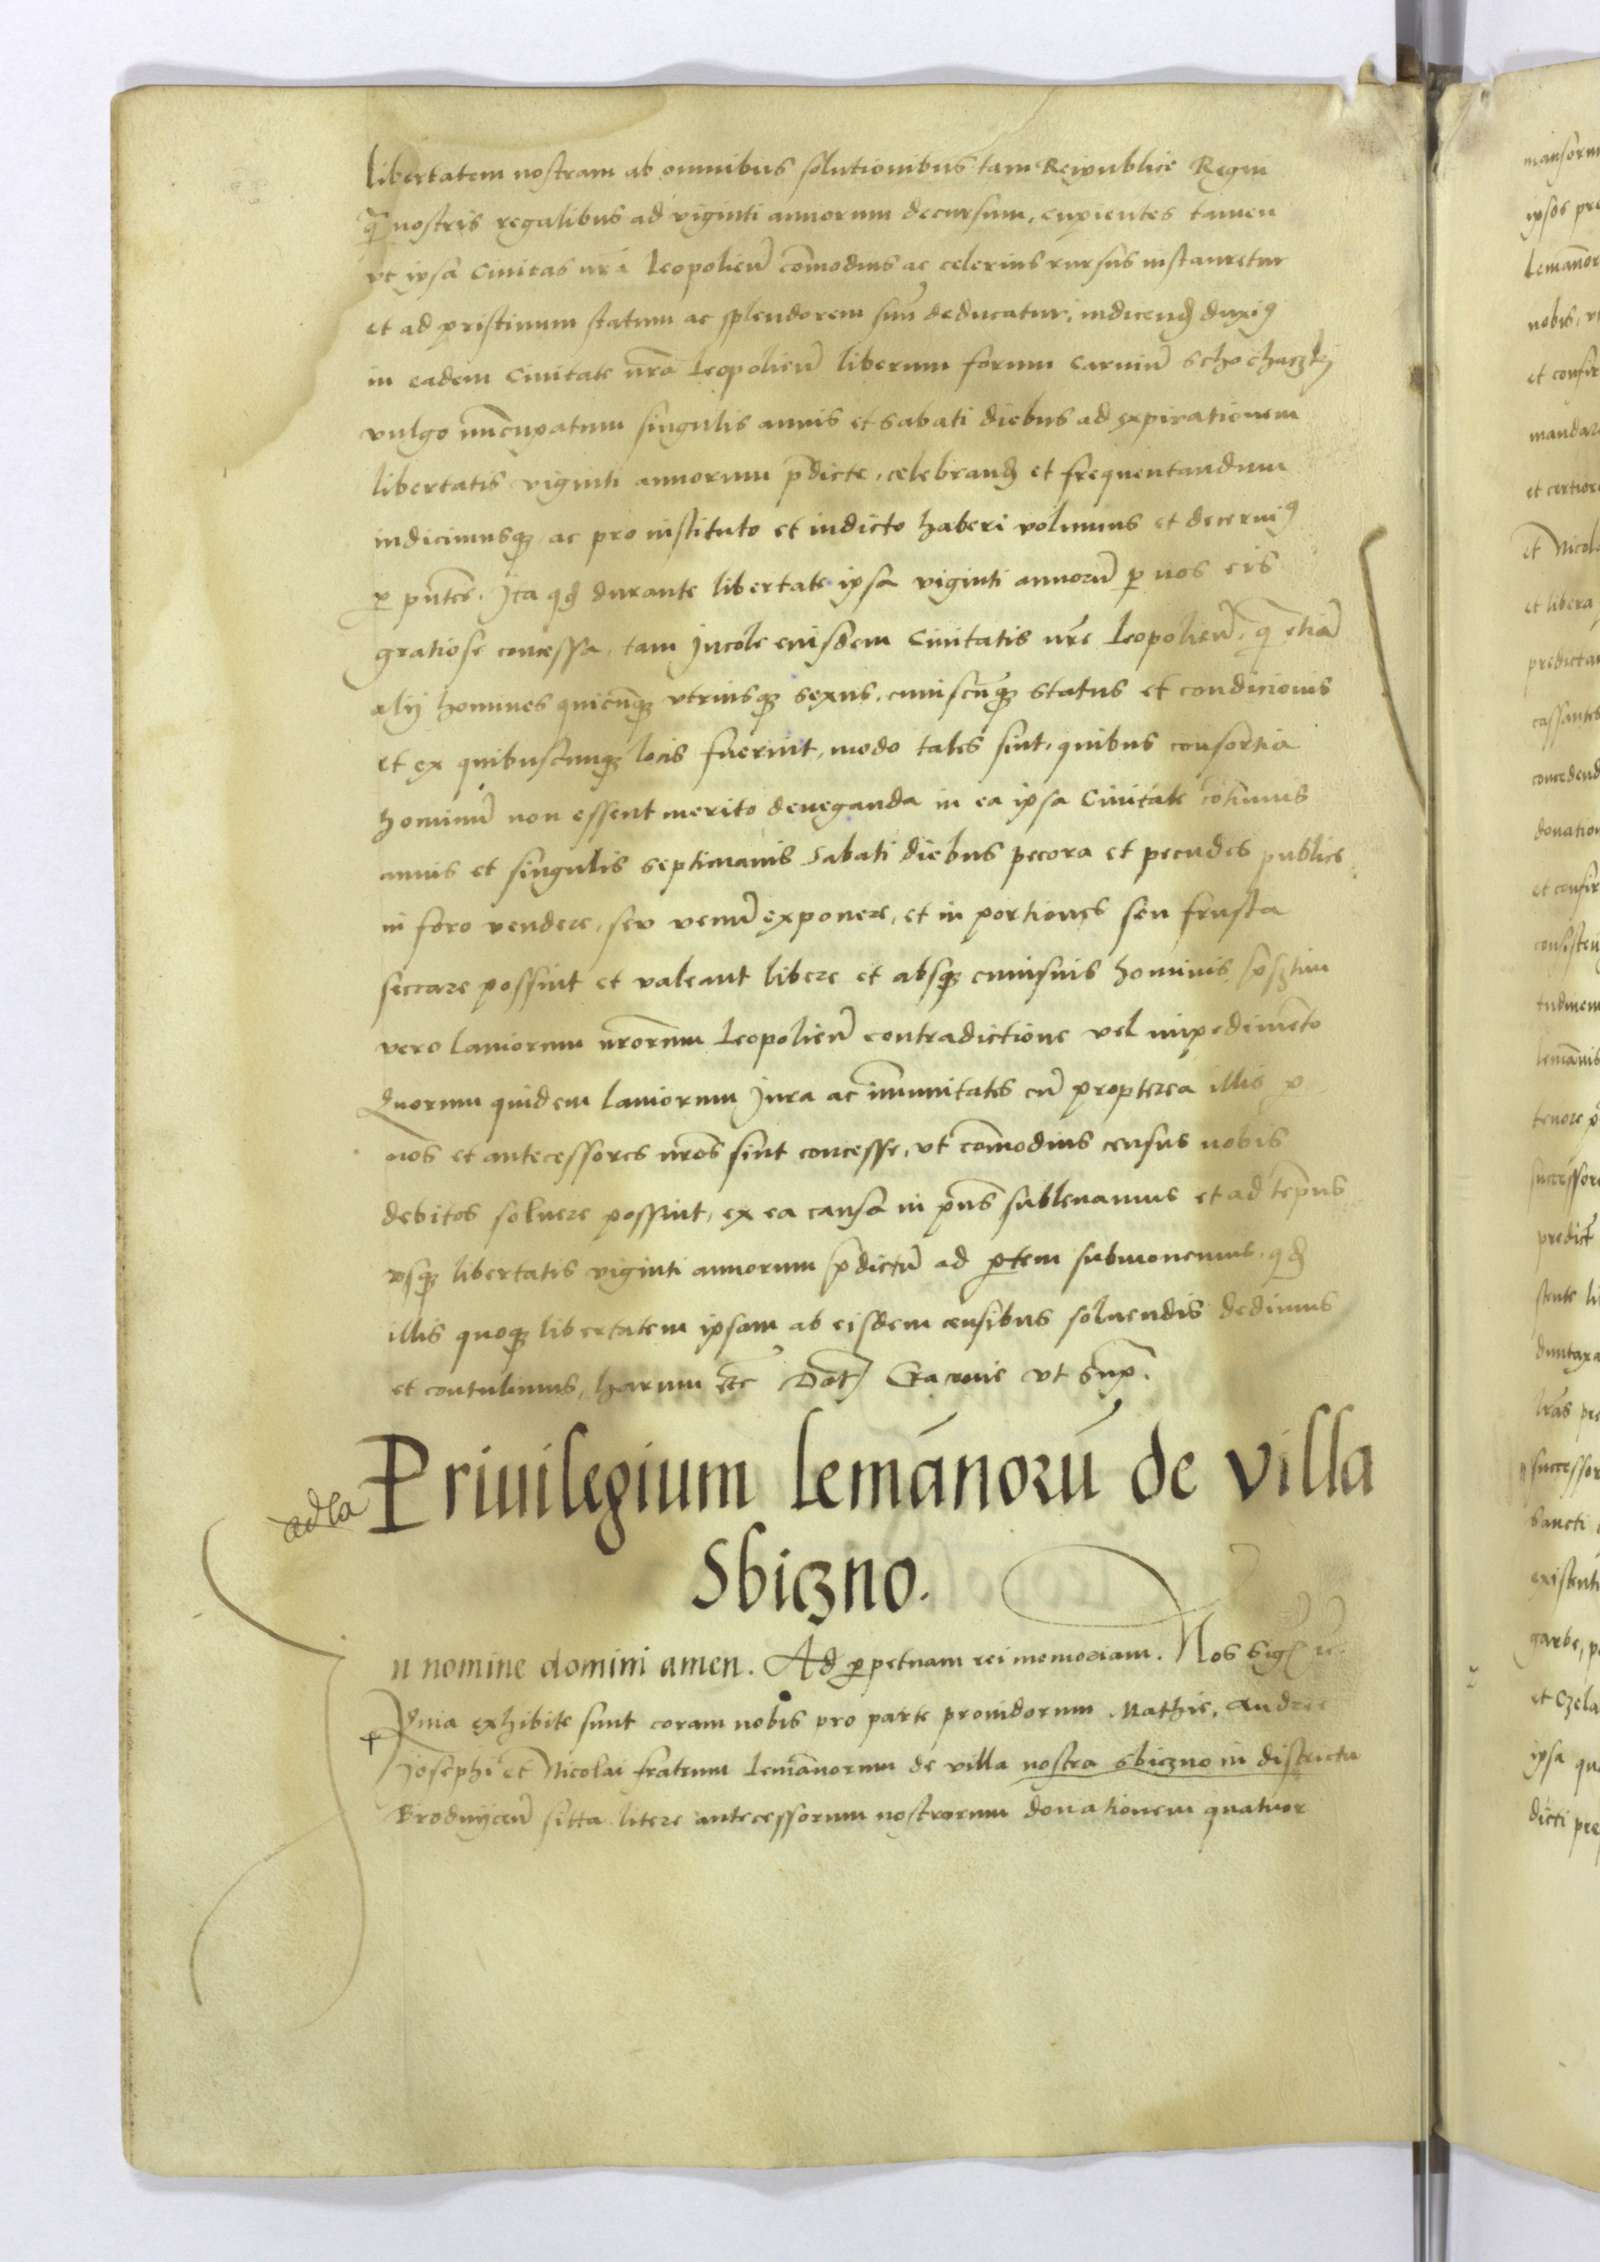 libertatem nostram ab omnibus solutionibus tam Reipublice Regni
q̄ nostris regalibus ad viginti annorum decursum, cupientes tamen
vt ipsa Ciuitas nr̄a Leopolien̄ com̄odius ac celerius rursus instauretur
et ad pristinum statum ac splendorem suū deducatur, indicend duxim9
in eadem Ciuitate nr̄a Leopolien̄ liberum forum carniū
vulgo nūcupatum singulis annis et sabati diebus ad expirationem
libertatis viginti annorum p̄dicte, celebrand et frequentandum
indicimusq3 ac pro instituto et indicto haberi volumus et decernim9
p pn̄tes. Ita qd durante libertate ipsa viginti annorū p nos eis
gratiose concessa, tam Incole eiusdem Ciuitatis nr̄e Leopolien̄, q̄ etiā
alij homines quicūq3 vtriusq3 sexus, cuiuscūq3 status et condicionis
et ex quibuscunq3 locis fuerint, modo tales sint, quibus consortia
hominū non essent merito deneganda in ea ipsa Ciuitate
annis et singulis septimanis Sabati diebus pecora et pecudes publice
in foro vendere, seu venū exponere, et in portiones seu frusta
seccare possint et valeant libere et absq3 cuiusuis hominis, p̄sertim
vero laniorum nr̄orum Leopolien̄ contradictione vel impedimēto
Quorum quidem laniorum Jura ac im̄unitates cū propterea illis p
nos et antecessores nr̄os sint concesse, vt com̄odius census nobis
debitos soluere possint, ex ea causa in pn̄s subleuamus et ad temp̄us
vsq3 libertatis viginti annorum p̄dictū ad ptem submouemus, qd
illis quoq3 libertatem ipsam ab eisdem censibus soluendis dedimus
et contulimus, harum etc̄ Dat Cracouie vt sup̄.
Priuilegium lemānorū de villa
adla
Sbiczno.
In nomine domini amen. Ad ppetuam rei memoriam. Nos Sigs
Quia exhibite sunt coram nobis pro parte prouidorum Mathie, Andree
Josephi et Nicolai fratrum lemānorum de villa nostra Sbiczno in districtu
Brodnijcen̄ sitta litere antecessorum nostrorum donationem quatuor